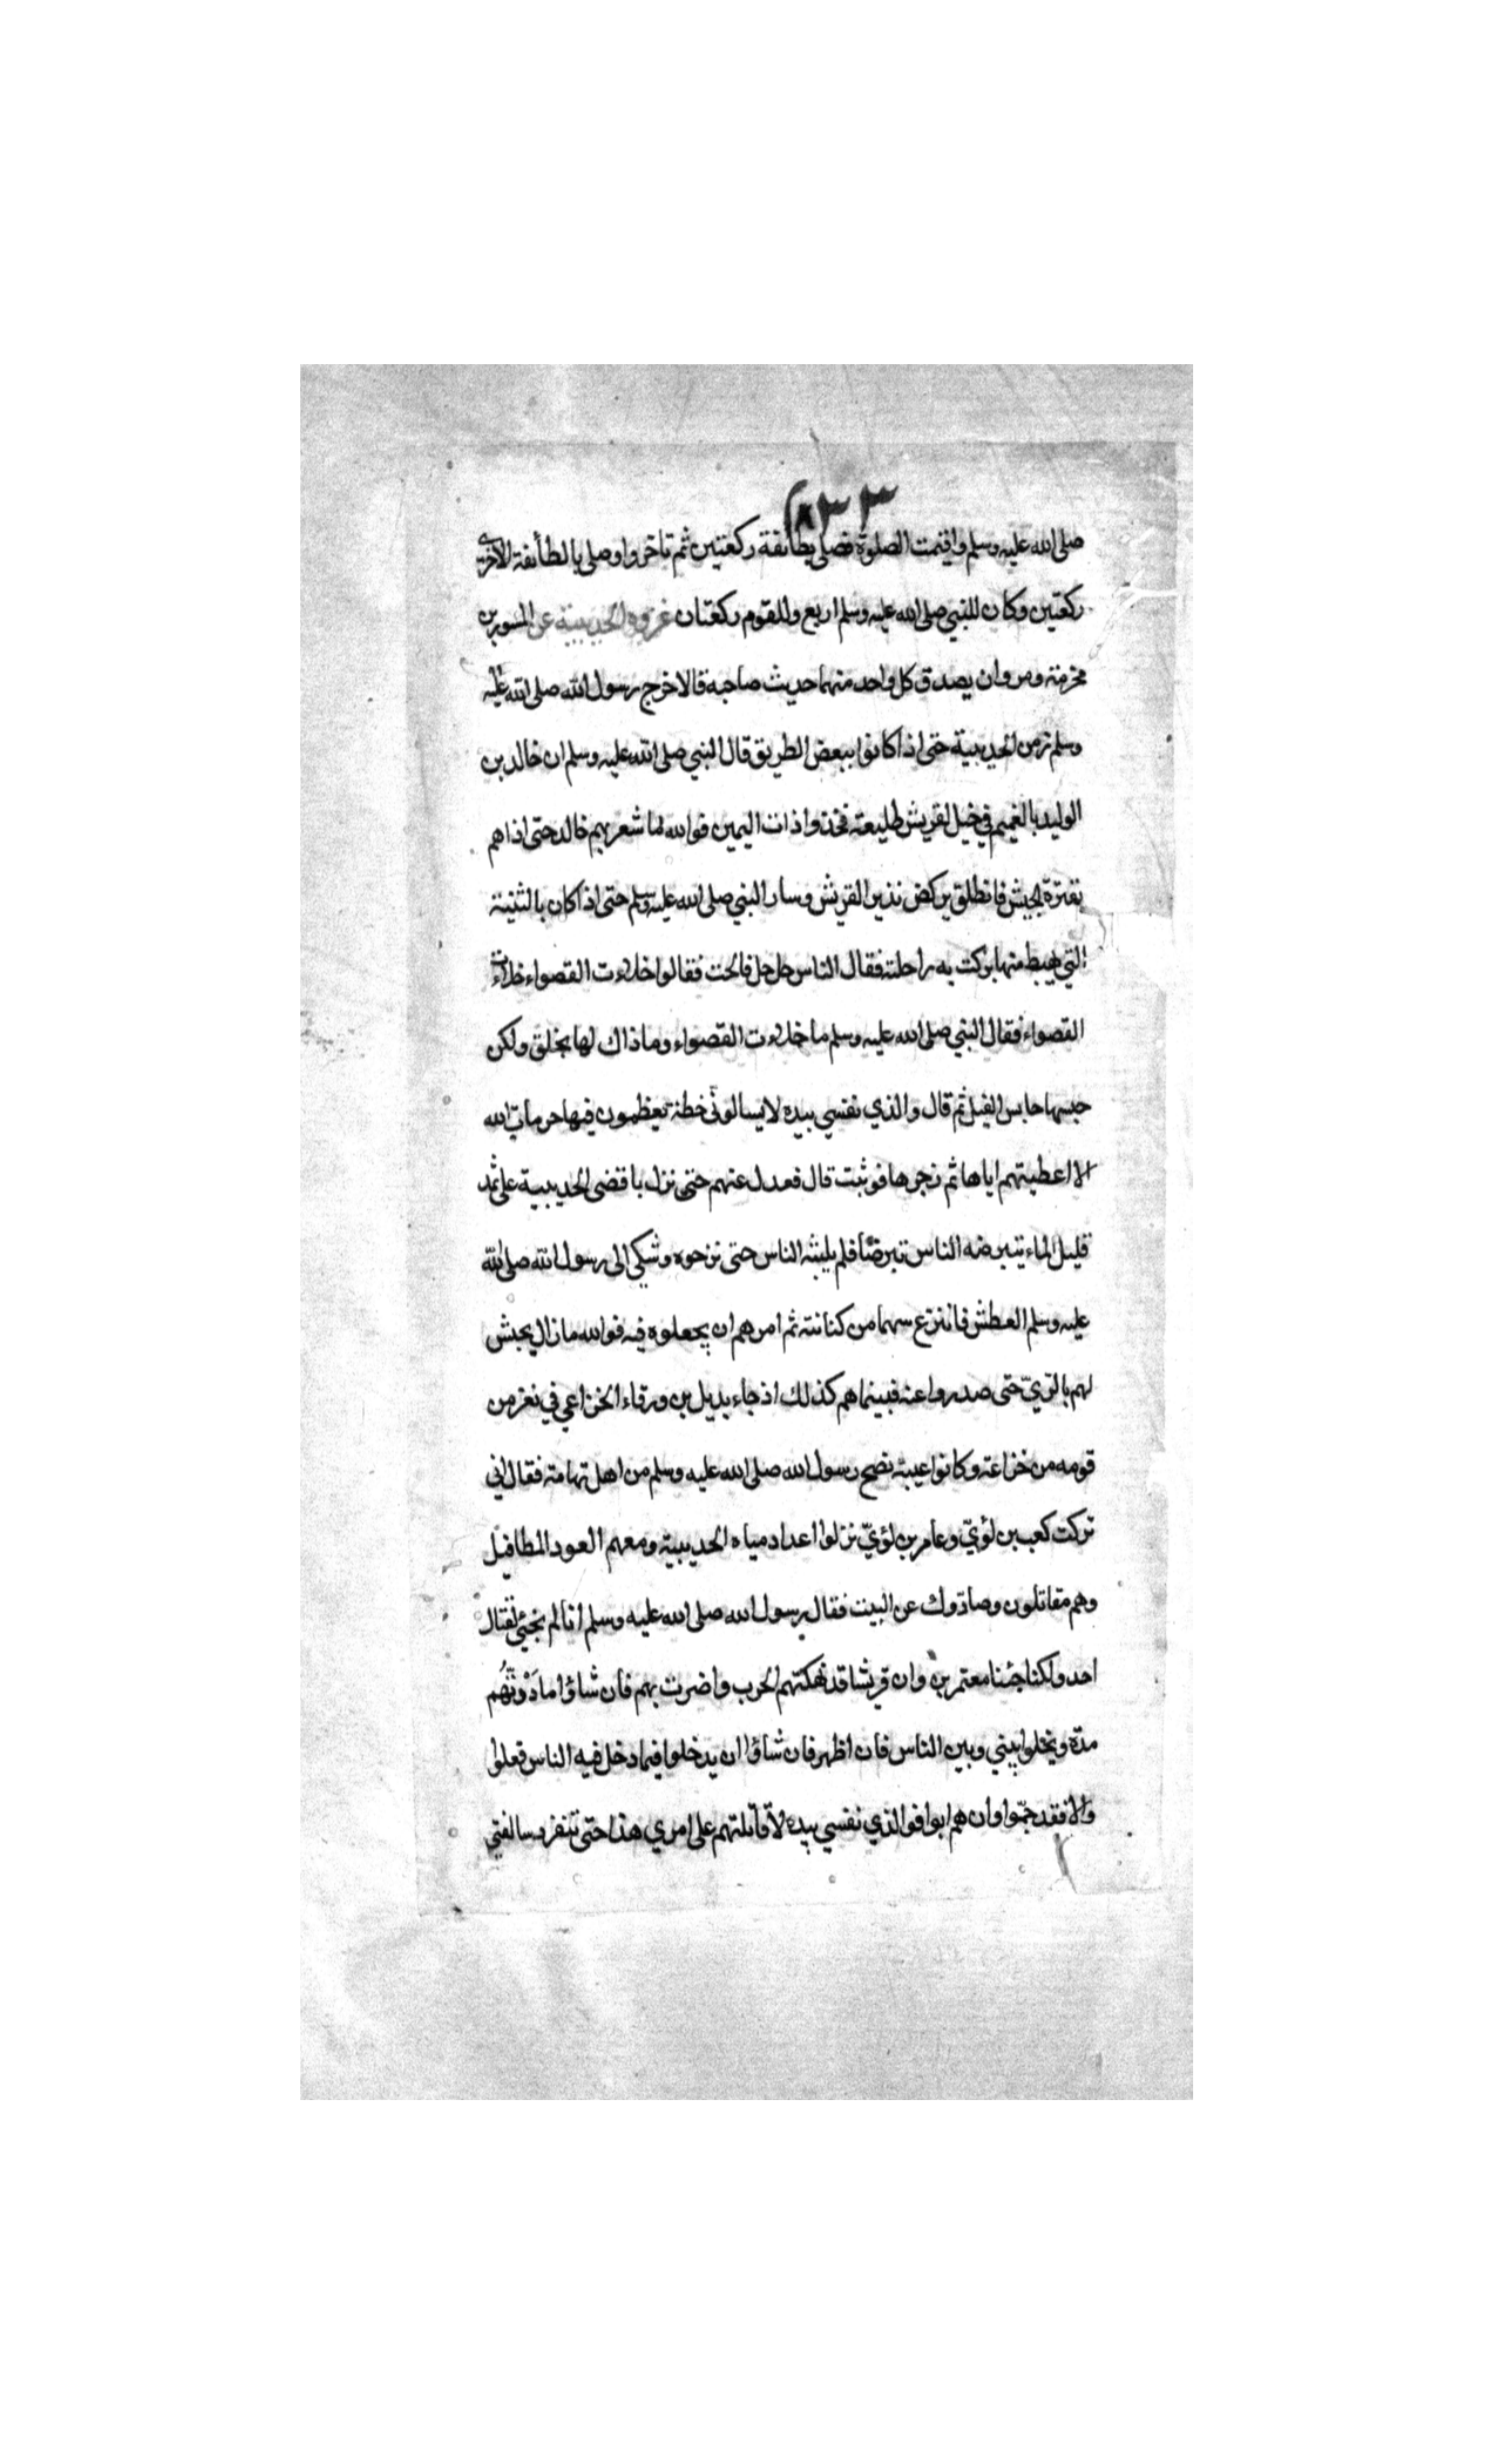 ٨٣٣
صلى الله عليه وسلم واقيمت الصلوة فصلى بطائفة ركعتين ثم تاخروا وصلى بالطائفة الاخرى
ركعتين وكان للنبي صلى الله عليه وسلم اربع وللقوم ركعتان غزوة الحديبية عن المسور بن
مخرمة ومروان يصدق كل واحد منهما حديث صاحبه قالا خرج رسول الله صلى الله عليه
وسلم زمن الحديبية حتى اذا كانوا ببعض الطريق قال النبي صلى الله عليه وسلم ان خالد بن
الوليد بالغميم في خيل لقريش طليعة فخذوا ذات اليمين فوالله ما شعر بهم خالد حتى اذا هم
بقترة الجيش فانطلق يركض نذيرا لقريش وسار النبي صلى الله عليه وسلم حتى اذا كان بالثنية
التي هبط منها بركت به راحلته فقال الناس حل حل فالحت فقالوا خلاءت القصواء خلاءت
القصواء فقال النبي صلى الله عليه وسلم ما خلاءت القصواء وما ذاك لها بخلق ولكن
حبسها حابس الفيل ثم قال والذي نفسي بيده لا يسالوني خطة يعظمون فيها حرمات الله
الا اعطيتهم اياها ثم زجرها فوثبت قال فعدل عنهم حتى نزل باقصى الحديبية على ثمد
قليل الماء يتبرضه الناس تبرضا فلم يلبثه الناس حتى نزحوه وشكي الى رسول الله صلى الله
عليه وسلم العطش فانتزع سهما من كنانته ثم امرهم ان يجعلوه فيه فوالله ما زال يجيش
لهم بالريّ حتى صدروا عنه فبينما هم كذلك اذ جاء بديل بن ورقاء الخزاعي في نفر من
قومه من خزاعة وكانوا عيبة نصح رسول الله صلى الله عليه وسلم من اهل تهامة فقال اني
تركت كعب بن لؤيّ وعامر بن لؤيّ نزلوا اعداد مياه الحديبية ومعهم العود المطافيل
وهم مقاتلون وصادّوك عن البيت فقال رسول الله صلى الله عليه وسلم انا لم نجئ لقتال
احد ولكنا جئنا معتمرين وان قريشا قد نهكتهم الحرب واضرت بهم فان شاؤا مادَدْتُهُم
مدة ويخلوا بيني وبين الناس فان اظهر فان شاؤا ان يدخلوا فيما دخل فيه الناس فعلوا
والا فقد جمّوا وان هم ابوا فوالذي نفسي بيده لاقاتلتهم على امري هذا حتى تنفرد سالفتي